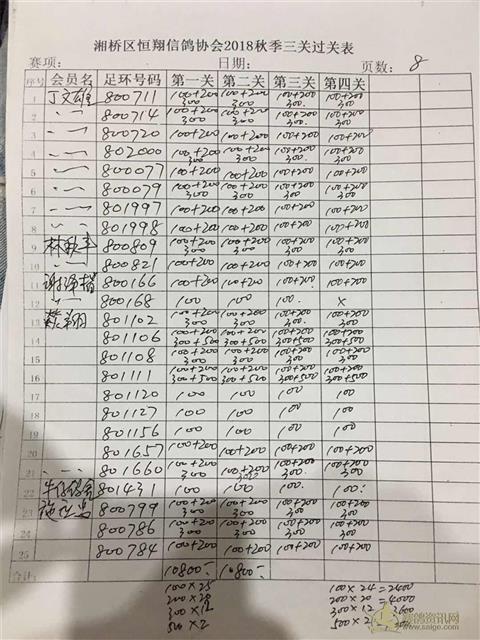 湘桥区恒翔信鸽协会2018秋季三关过关表
赛项: 日期: 页数: 8
序号 会员名 足环号码 第一关 第二关 第三关 第四关
1 丁文雄 800711 100+200 300 100+200 300 100+200 300 100+200 300
2 800714 100+200 300 100+200 300 100+200 300. 100+200 300
3 800720 100+200 100+200 100+200 100+200
4 802000 100+200 300 100+200 300 100+200 300. 100+200 300
5 800077 100+200 100+200 100+200 100+200
6 800079 100+200 300 100+200 300 100+200 300. 100+200 300
7 801997 100+200 100+200 100+200 100+200
8 801998 100+200 100+200 100+200 100+200
9 800809 100+200 300 100+200 300 100+200 300. 100+200 300
10 800821 100+200 100+200 100+200 100+200
11 800166 100+200 100+200 100+200 100+200
12 800168 100 100 100. ×
13 801102 100+200 300 100+200 300 100+200 300. 100+200 300
14 801106 100+200 300+500 100+200 300+500 100+200 300+500 100+200 300+500
15 801108 100+200 300 100+200 300 100+200 300 100+200 300
16 801111 100+200 300+500 100+200 300+500 100+200 300+500 100+200 300+500
17 801120 100 100 100 100
18 801127 100 100 100 100
19 801156 100 100 100 100
20 801657 100+200 100+200 100+200 100+200
21 801660 100+200 300 100+200 100+200 300 100+200 300
22 801431 100 100 100 100
23 800799 100+200 300 100+200 300 100+200 300 100+200 300
24 800786 100+200 300 100+200 300 100+200 300 100+200 300
25 800784 100+200 100+200 100+200 100+200
合计: 10800- 10800-
100×25 100×24=2400
200×20=4000
300×12 300×12=3600
500×2 500×2
信鸽资讯网
www.saige.com